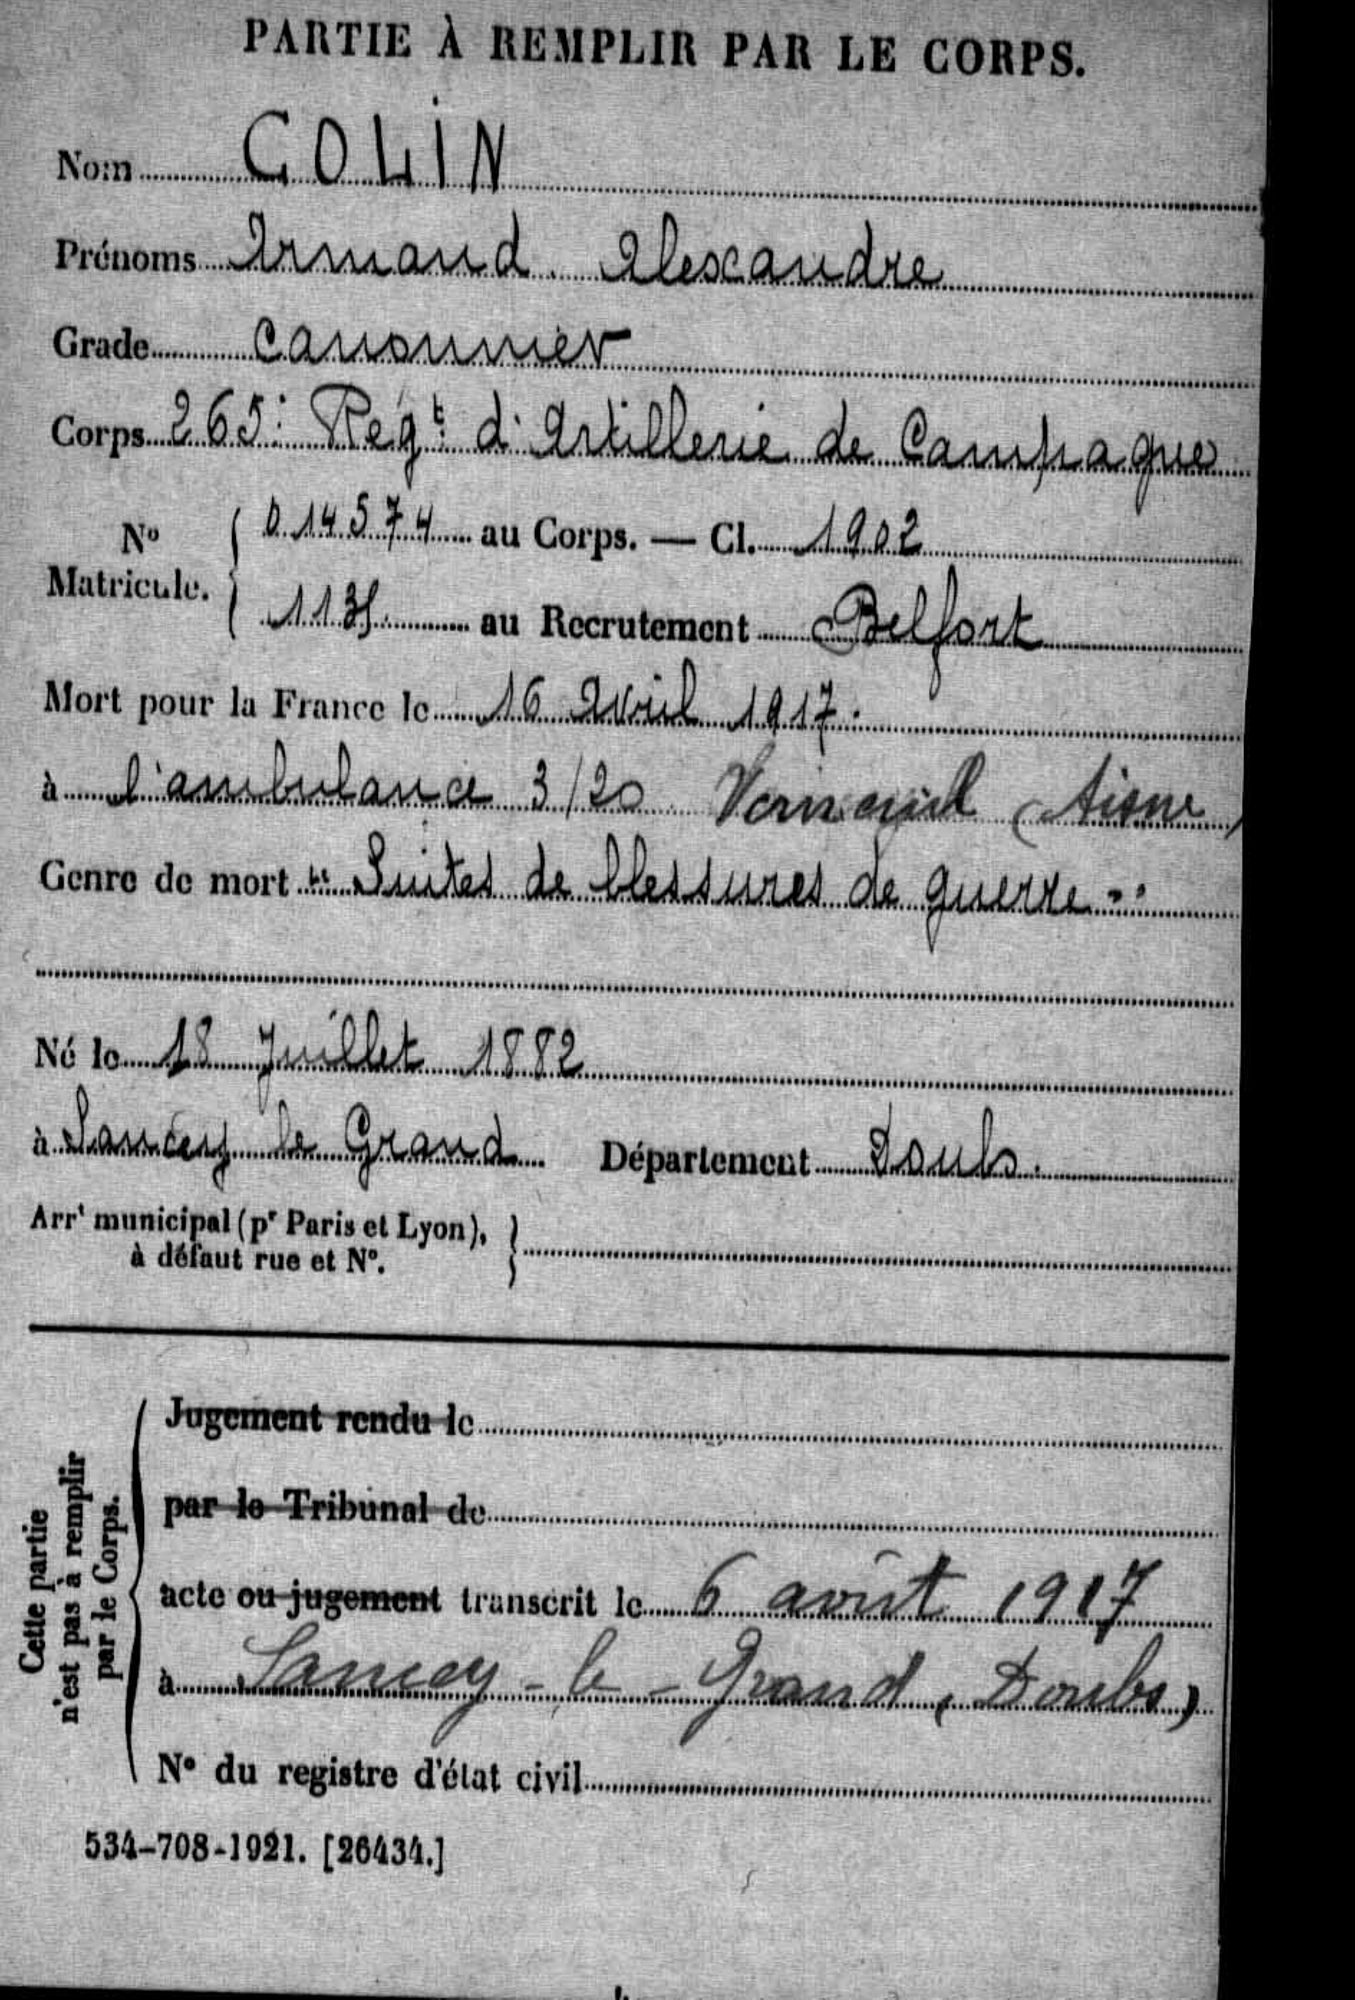 PARTIE À REMPLIR PAR LE CORPS.
Nom COLIN
Prénoms Armand Alexandre
Grade Canonnier
Corps 265: Régt d'Artillerie de Campagne
No Matricule. { 0.14574 au Corps. — Cl. 1902
1135 au Recrutement Belfort
Mort pour la France le 16 Avril 1917.
à l'ambulance 3/20 Verneuil (Aisne)
Genre de mort "Suites de blessures de guerre"
Né le 18 Juillet 1882
à Sancey le Grand Département Doubs.
Arrt municipal (pr Paris et Lyon), }
à défaut rue et No.
Cette partie
n'est pas à remplir
par le Corps.
Jugement rendu le
par le Tribunal de
acte ou jugement transcrit le 6 août 1917
à Sancey-le-Grand (Doubs)
No du registre d'état civil
534-708-1921. [26434.]